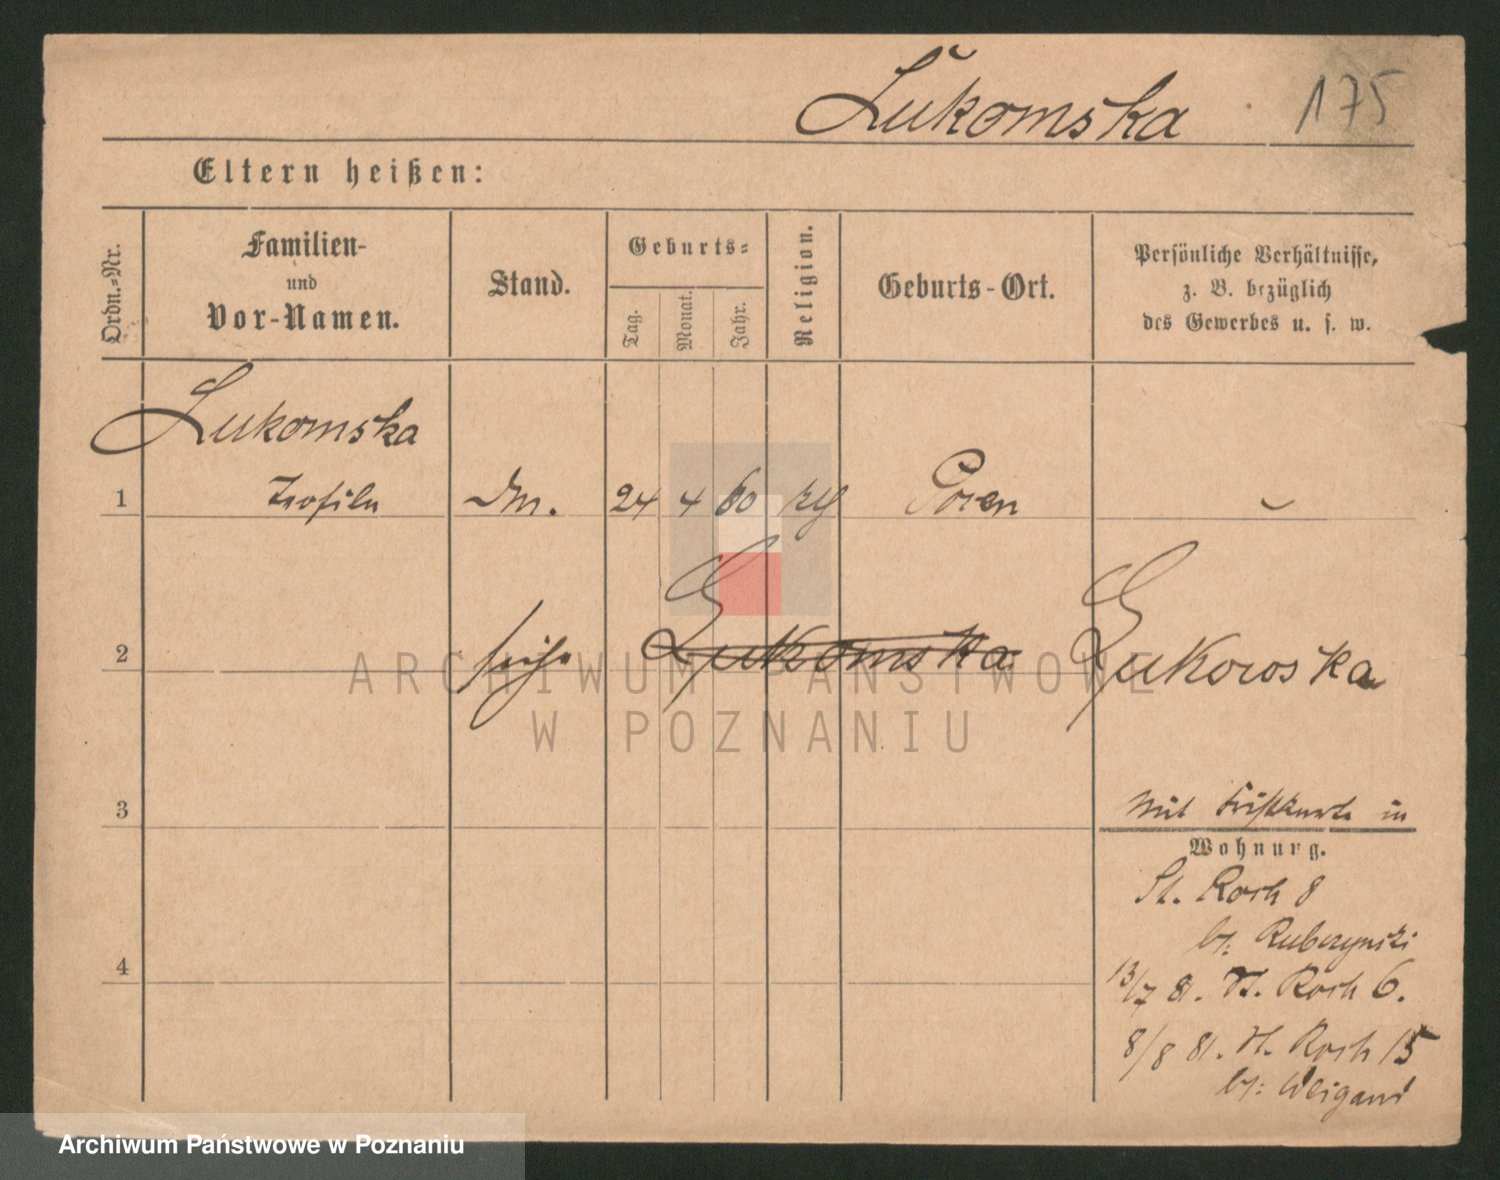 Łukomska 175
Eltern heißen:
Ordn.-Nr.
Familien-
und
Vor-Namen.
Stand.
Geburts-
Tag.
Monat.
Jahr.
Religion.
Geburts-Ort.
Persönliche Verhältnisse,
z. B. bezüglich
des Gewerbes u. s. w.
Lukomska
1 Teofila 24 4 60 Posen
2 siehe Lukomska Lukowska
ARCHIWUM PAŃSTWOWE
W POZNANIU
3
Mit in
Wohnung.
St. Roch 8
b/: Rubczynski
4
13/7 81. St. Roch 6.
8/8 81. St. Roch 15
b/: Weigand
Archiwum Państwowe w Poznaniu